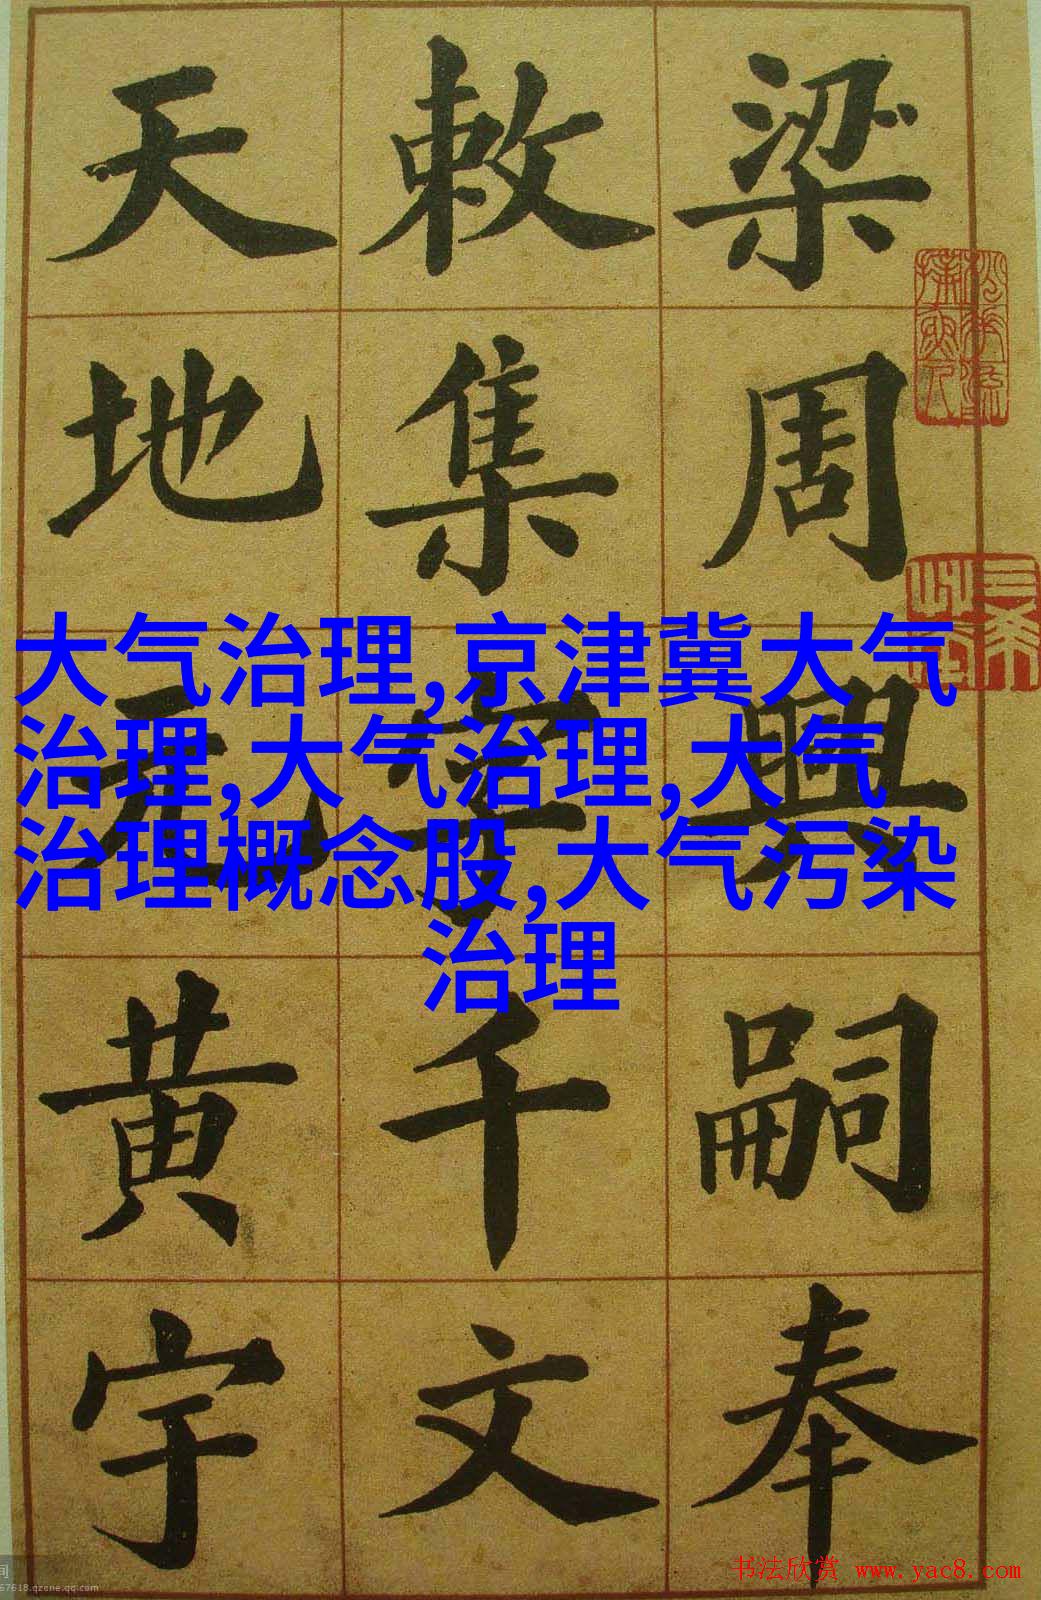 梁周興嗣奉
敕集字千文
天地元黄宇
大气治理,京津冀大气
治理,大气治理,大气
治理概念股,大气污染
治理
书法欣赏 www.yac8.com
67618.qzone.qq.com